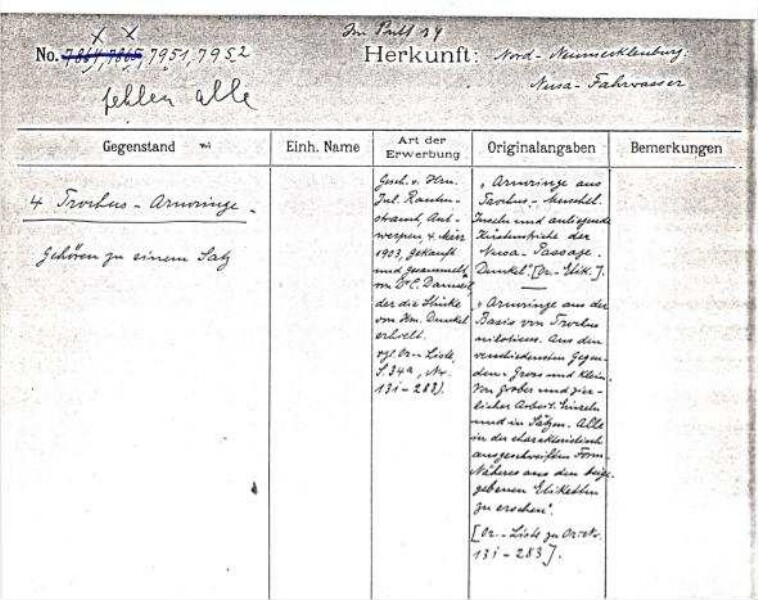 Im Pult 34
No. 7864, 7865, 7951, 7952
Herkunft: Nord-Neumecklenburg:
Nusa-Fahrwasser
fehlen alle
Gegenstand
Einh. Name
Art der Erwerbung
Originalangaben
Bemerkungen
4 Trochus-Armringe.
Gehören zu einem Satz
Gesch. v. Hrn.
Jul. Rauten-
strauch, Ant-
werpen, 4. März
1903, gekauft
und gesammelt
von Dr. C.
der die Stücke
von Hrn. Dunkel
erhielt.
vgl. Or.-Liste,
S. 34a, Nr.
131-283).
"Armringe aus
Trochus-Muschel.
Inseln und anliegende
Küstenstriche der
Nusa-Passage.
Dunkel". [Or.-Etik.].
"Armringe aus der
Basis von Trochus
niloticus. Aus den
verschiedensten Gegen-
den. Gross und klein.
Von grober und zier-
licher Arbeit. Einzeln
und in Sätzen. Alle
in der charakteristisch
ausgeschweiften Form.
Näheres aus den beige-
gebenen Etiketten
zu ersehen".
[Or.-Liste zu Or.-Nr.
131-283].